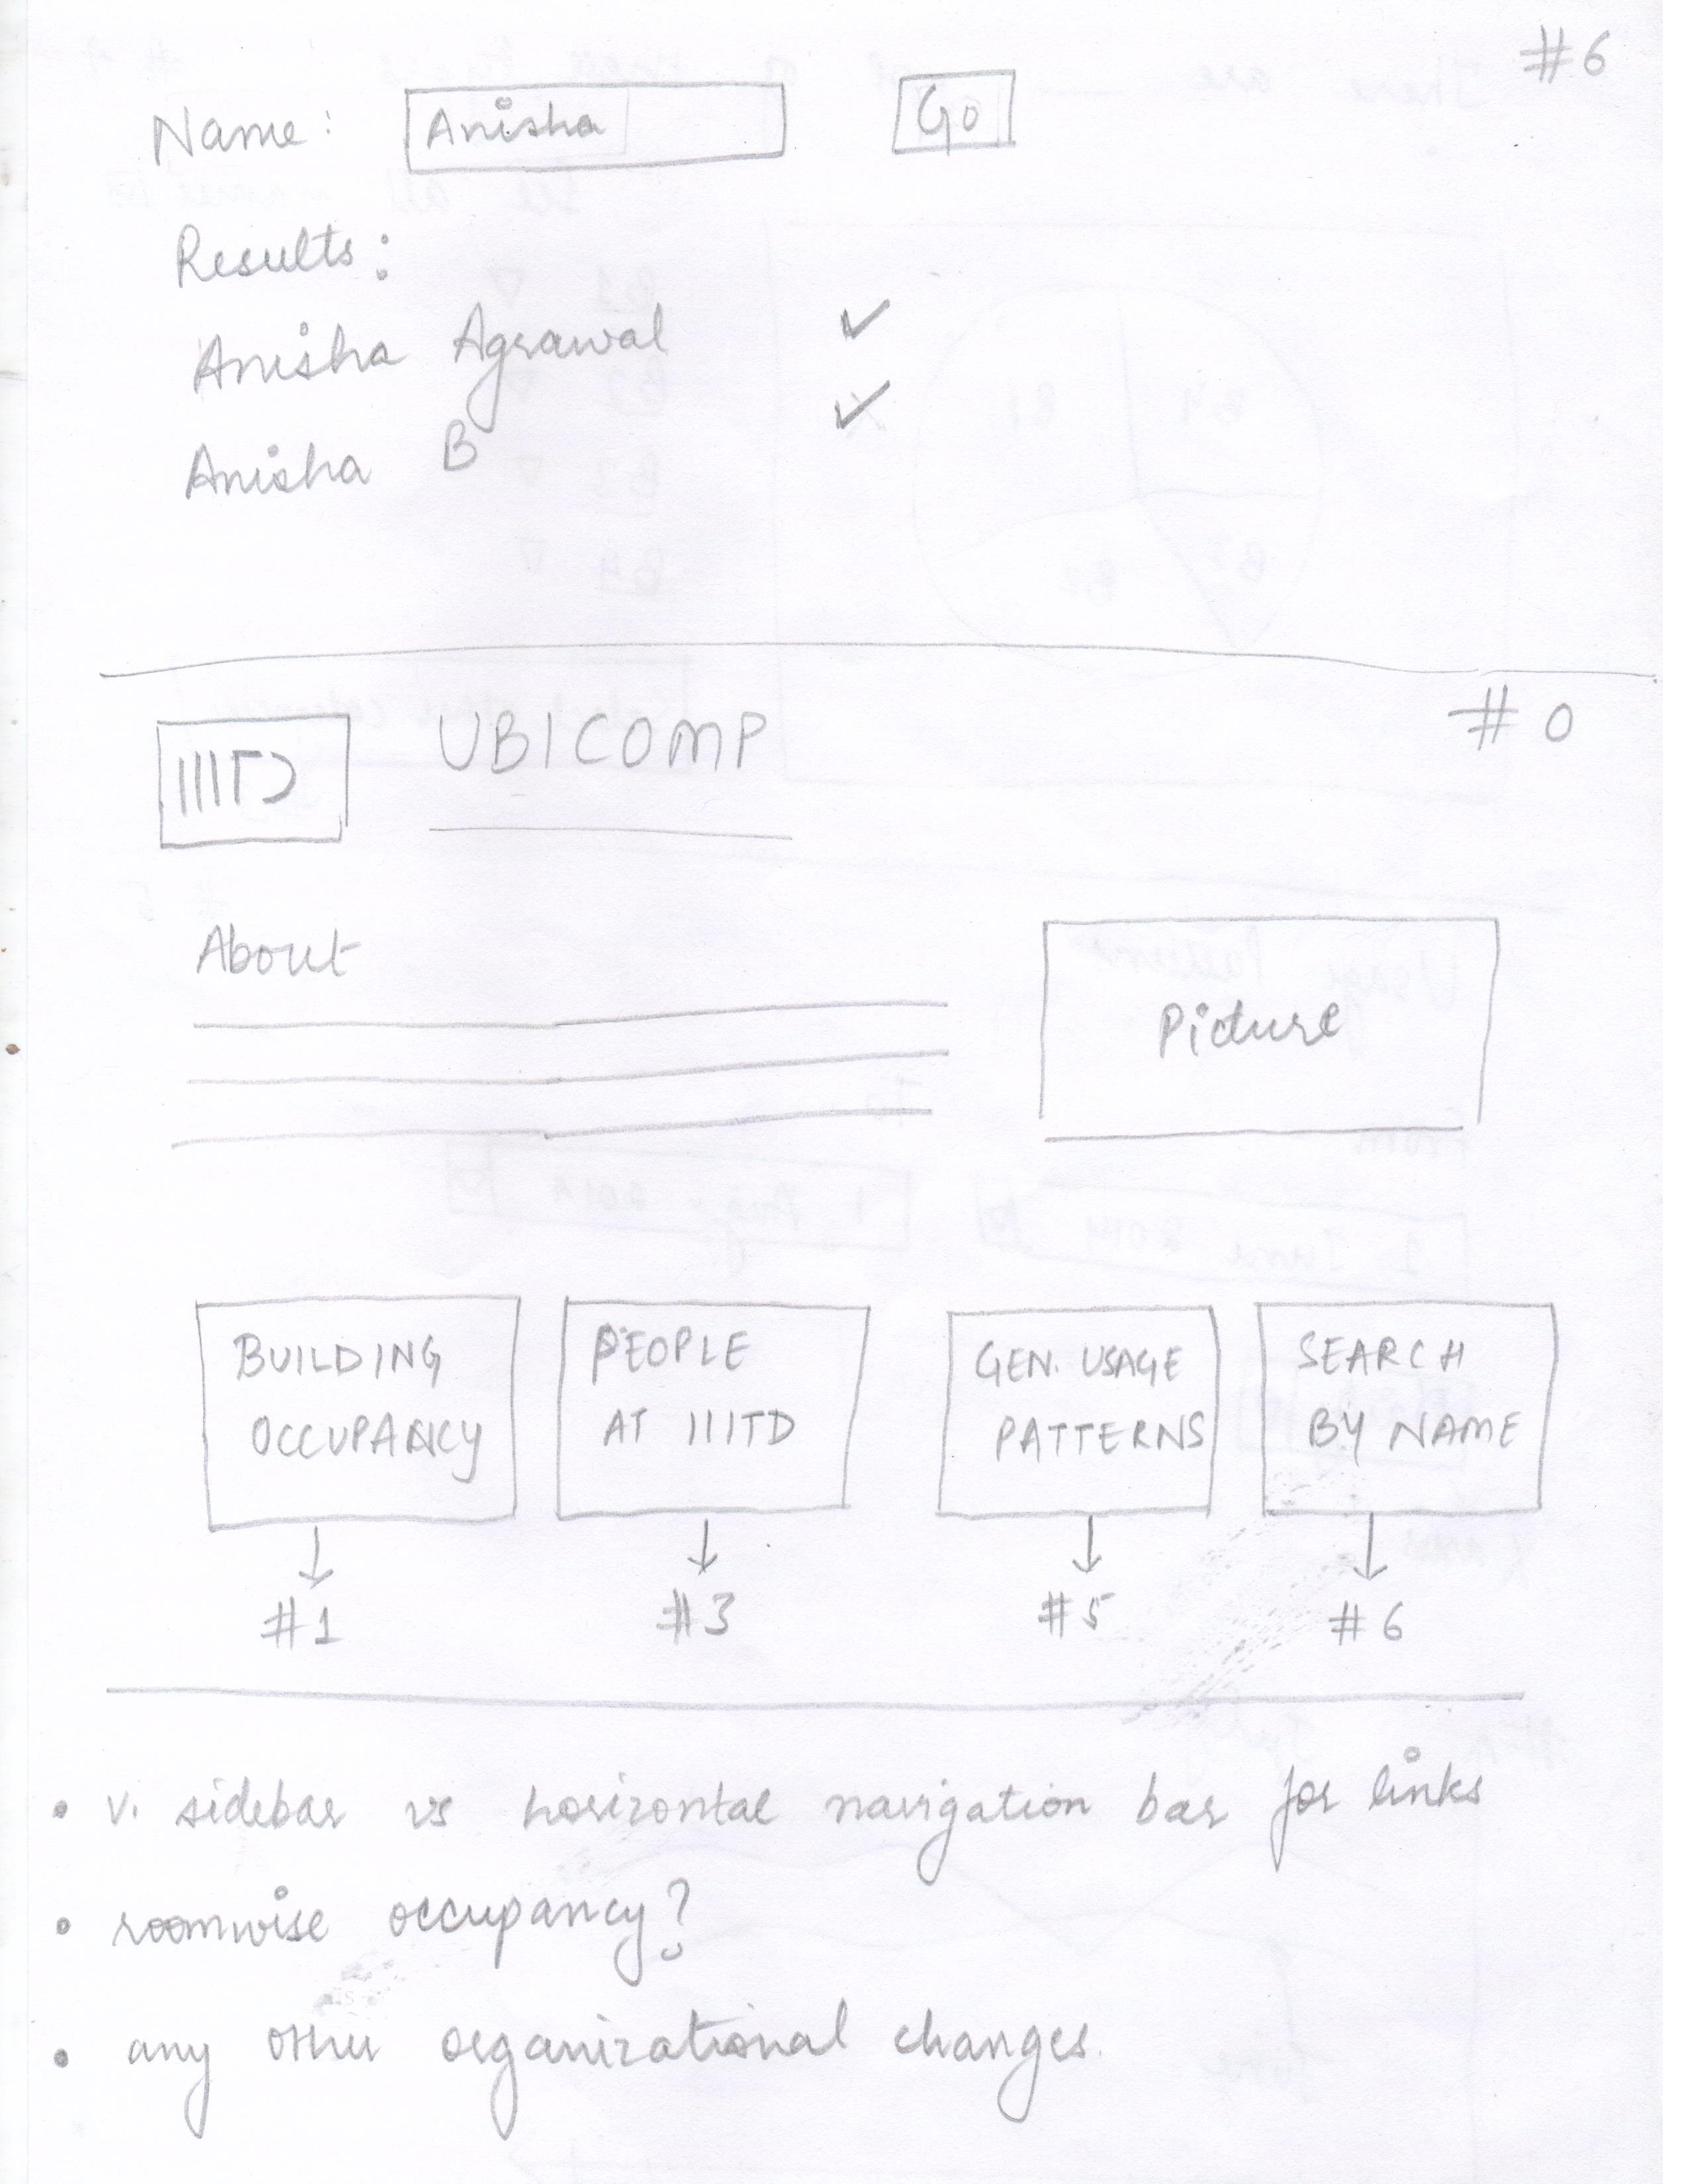 #6
Name: Anisha Go
Results:
Anisha Agrawal ✓
Anisha B ✓
IIITD UBICOMP #0
About
Picture
BUILDING OCCUPANCY
PEOPLE AT IIITD
GEN. USAGE PATTERNS
SEARCH BY NAME
#1 #3 #5 #6
• v. sidebar vs horizontal navigation bar for links
• roomwise occupancy?
• any other organizational changes.